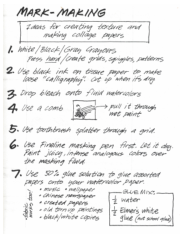 MARK-MAKING
Ideas for creating texture and
making collage papers
1. White/Black/Gray Crayons
Press hard/create grids, squiggles, patterns
2. Use black ink on tissue paper to make
loose "calligraphy". Cut up when it's dry.
3. Drop bleach onto fluid watercolors
4. Use a comb
pull it through
wet paint
5. Use toothbrush splatter through a grid.
6. Use fineline masking pen first. Let it dry.
Paint juicy, intense analogous colors over
the masking fluid.
7. Use 50% glue solution to glue assorted
papers onto your watercolor paper:
• wall paper
• chinese newspaper
• created papers
• old torn up paintings
• black/white copies
GLUE MIX:
1/2 water
1/2 Elmer's white
glue